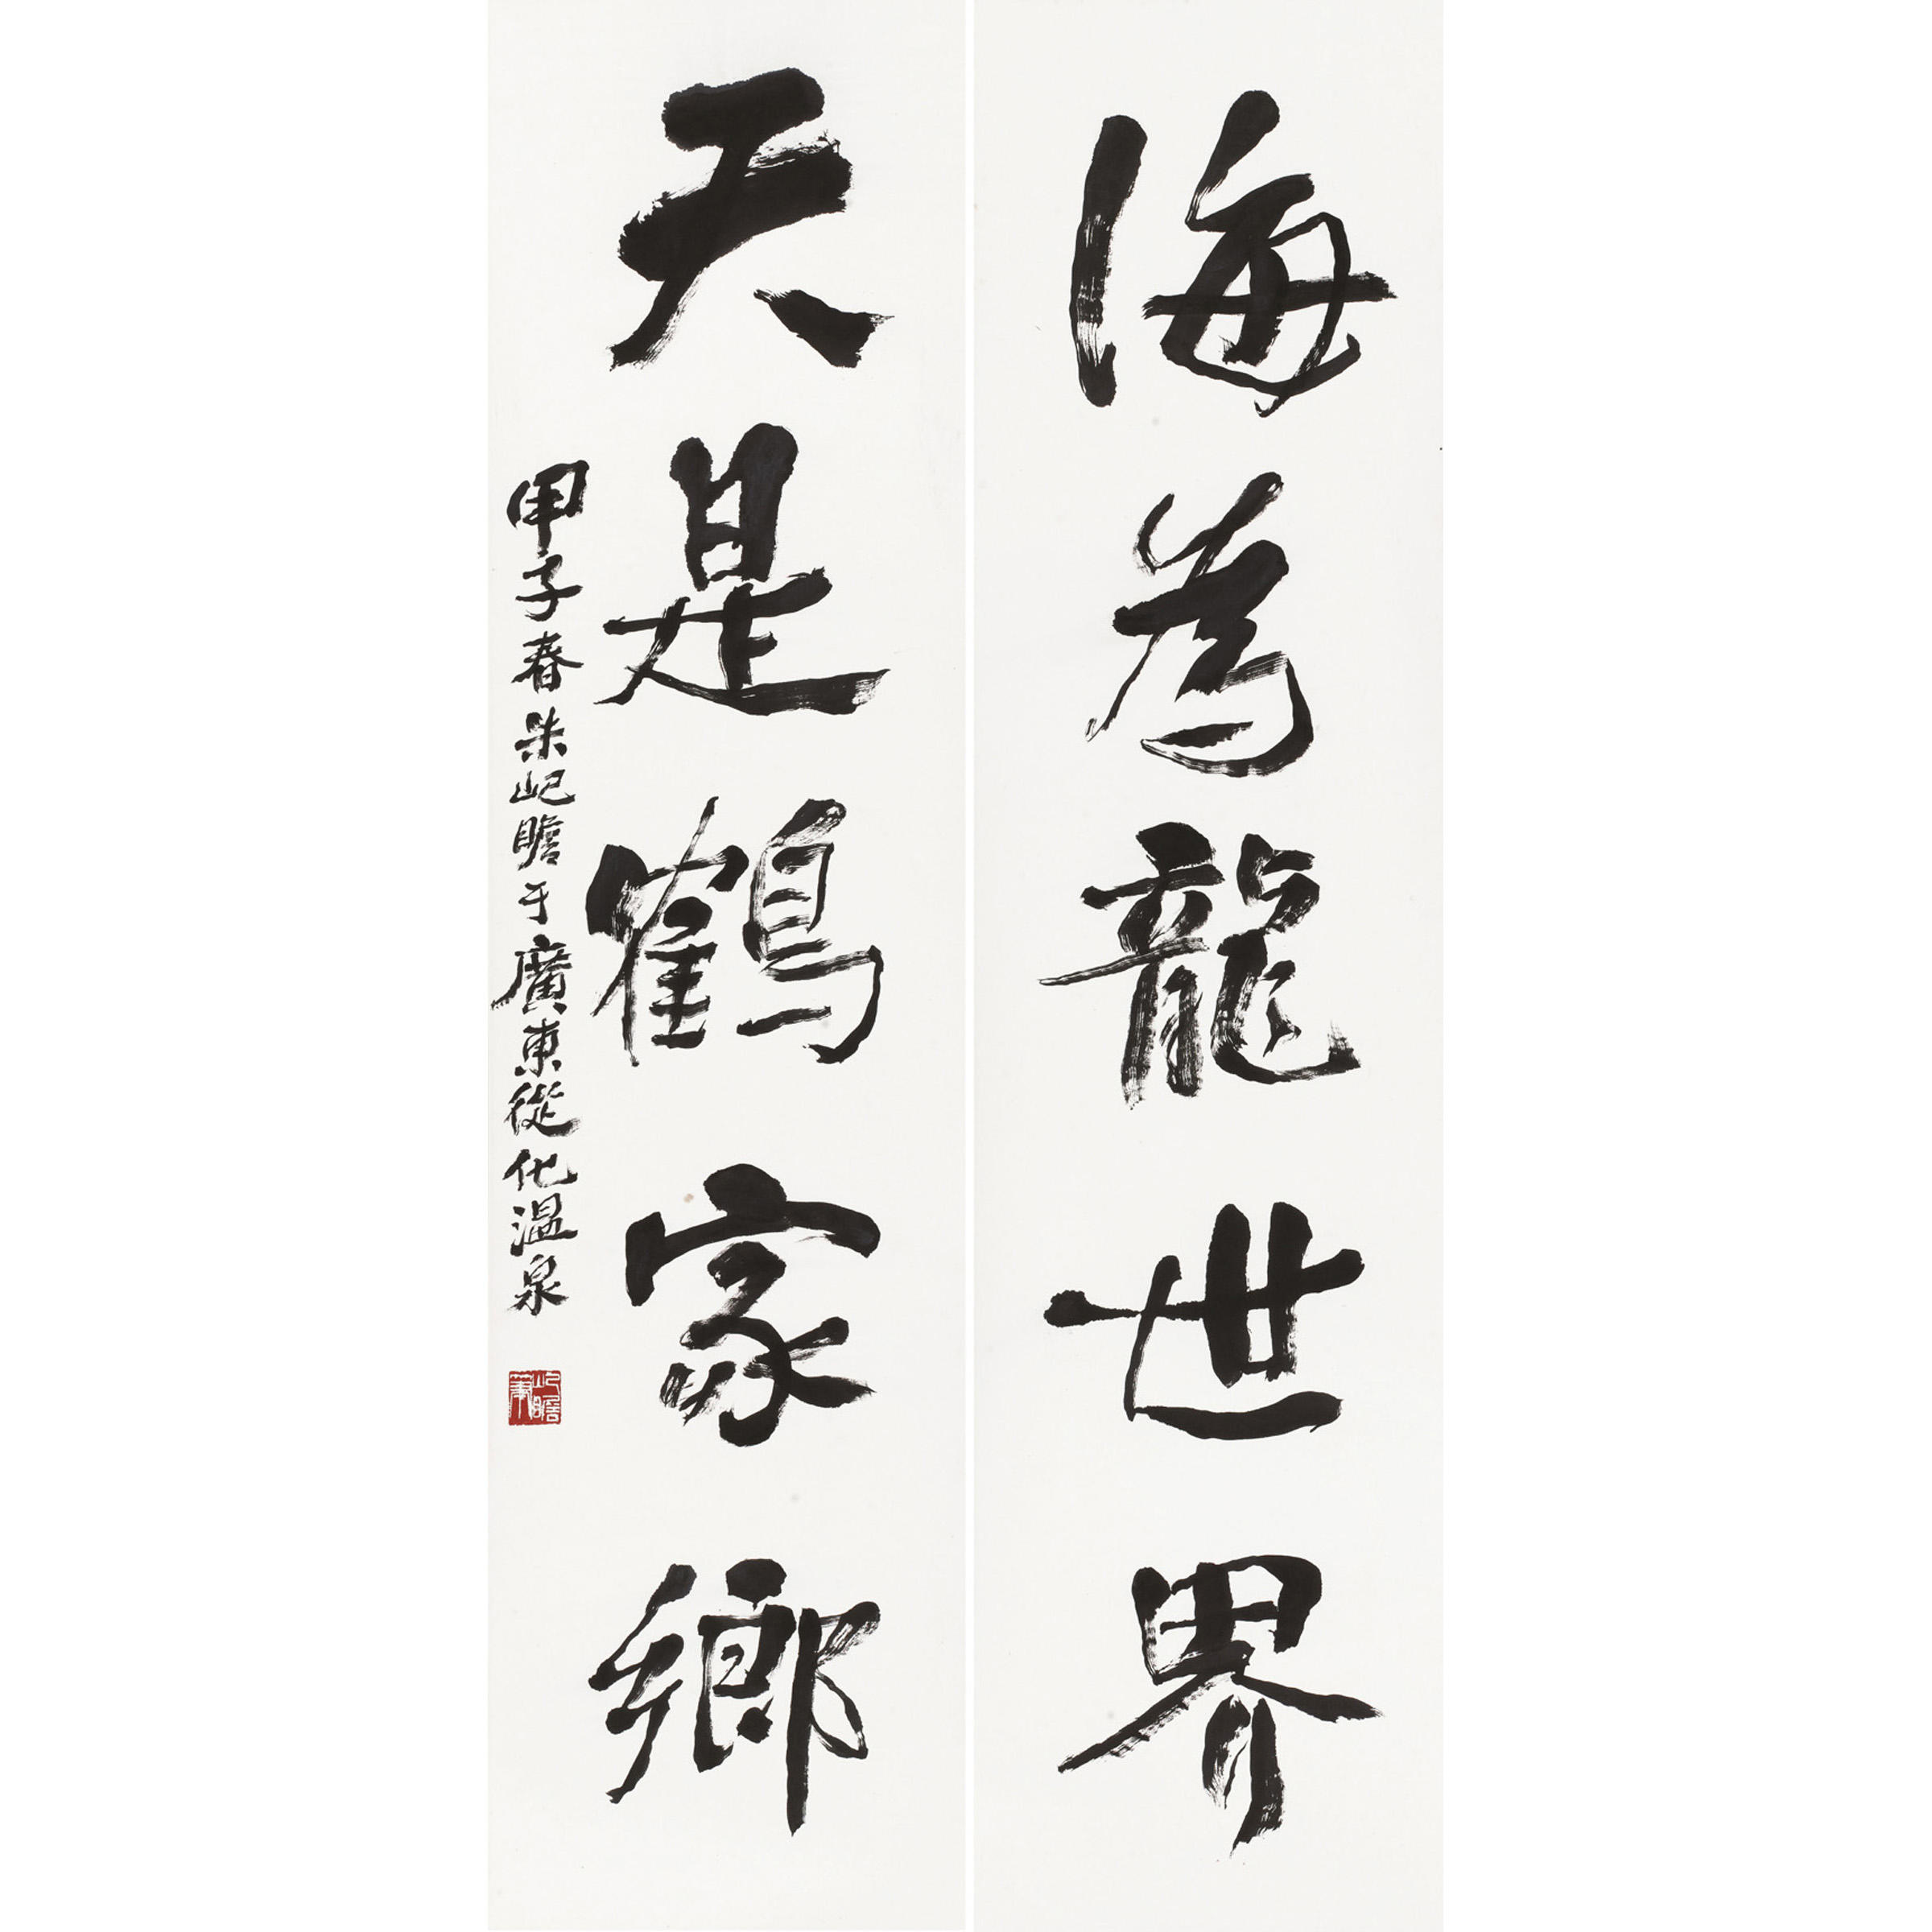 海為龍世界
天是鶴家鄉
甲子春朱屺瞻于廣東從化溫泉